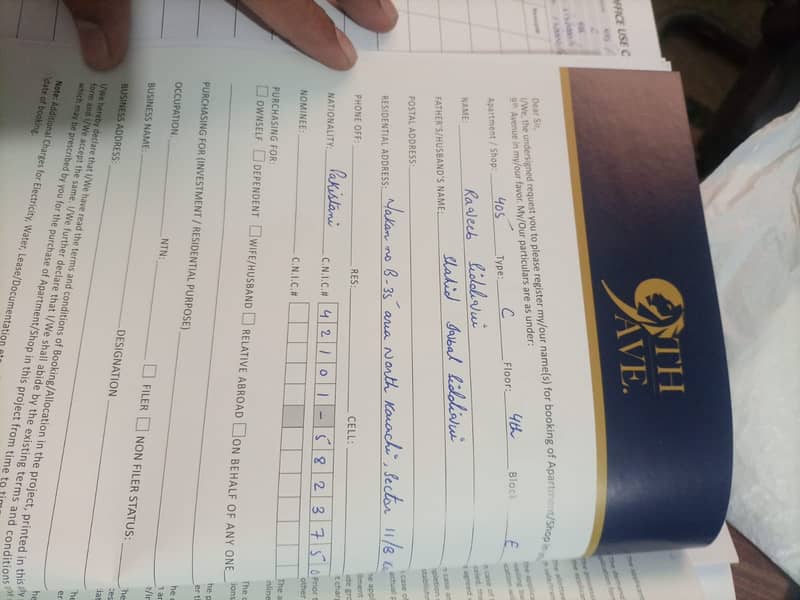 9TH
AVE.
Dear Sir,
I/We, the undersigned request you to please register my/our name(s) for booking of Apartment/Shop in
9th Avenue in my/our favor. My/Our particulars are as under:
Apartment / Shop: 405 Type: C Floor: 4th Block E
NAME: Raqeeb Siddiqui
FATHER'S/HUSBAND'S NAME: Shahid Iqbal Siddiqui
POSTAL ADDRESS:
RESIDENTIAL ADDRESS: Makan no B-35 area North Karachi, Sector 11/B
PHONE OFF: RES: CELL:
NATIONALITY: Pakistani C.N.I.C.# 42101-582375
NOMINEE: C.N.I.C.#
PURCHASING FOR:
OWNSELF DEPENDENT WIFE/HUSBAND RELATIVE ABROAD ON BEHALF OF ANY ONE
PURCHASING FOR (INVESTMENT / RESIDENTIAL PURPOSE)
OCCUPATION:
BUSINESS NAME: NTN: FILER NON FILER STATUS:
BUSINESS ADDRESS: DESIGNATION
I/We hereby declare that I/We have read the terms and conditions of Booking/Allocation in the project, printed in this
form and I/We accept the same. I/We further declare that I/We shall abide by the existing terms and conditions
which may be prescribed by you for the purchase of Apartment/Shop in this project from time to time
Note: Additional Charges for Electricity, Water, Lease/Documentation etc.
date of booking.
OFFICE USE